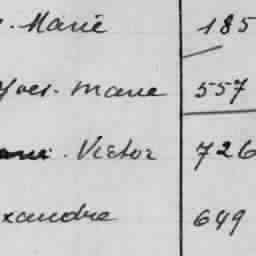 - Marie 185
Yves - Marie 557
Victor 726
xandre 649